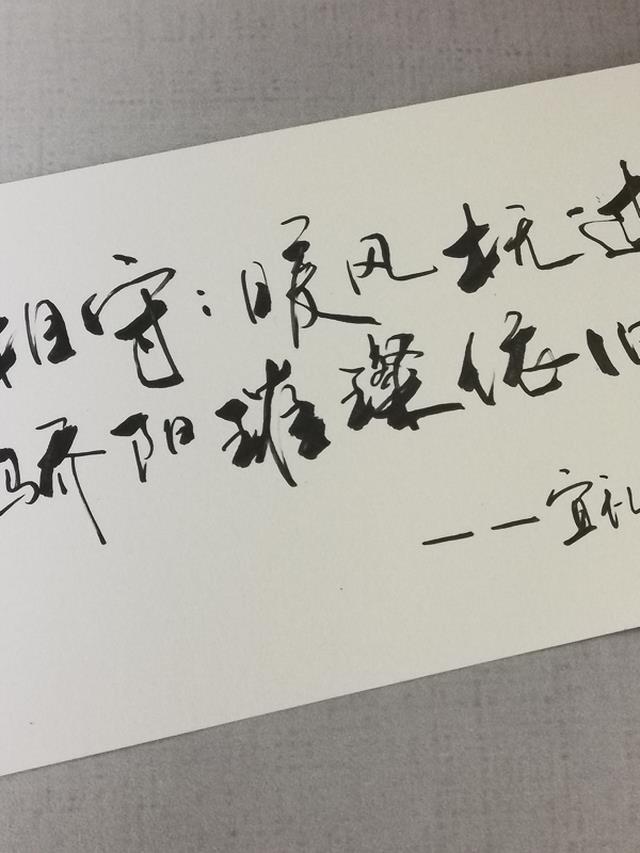 相守：暖风抚过
骄阳璀璨依旧
——宜礼